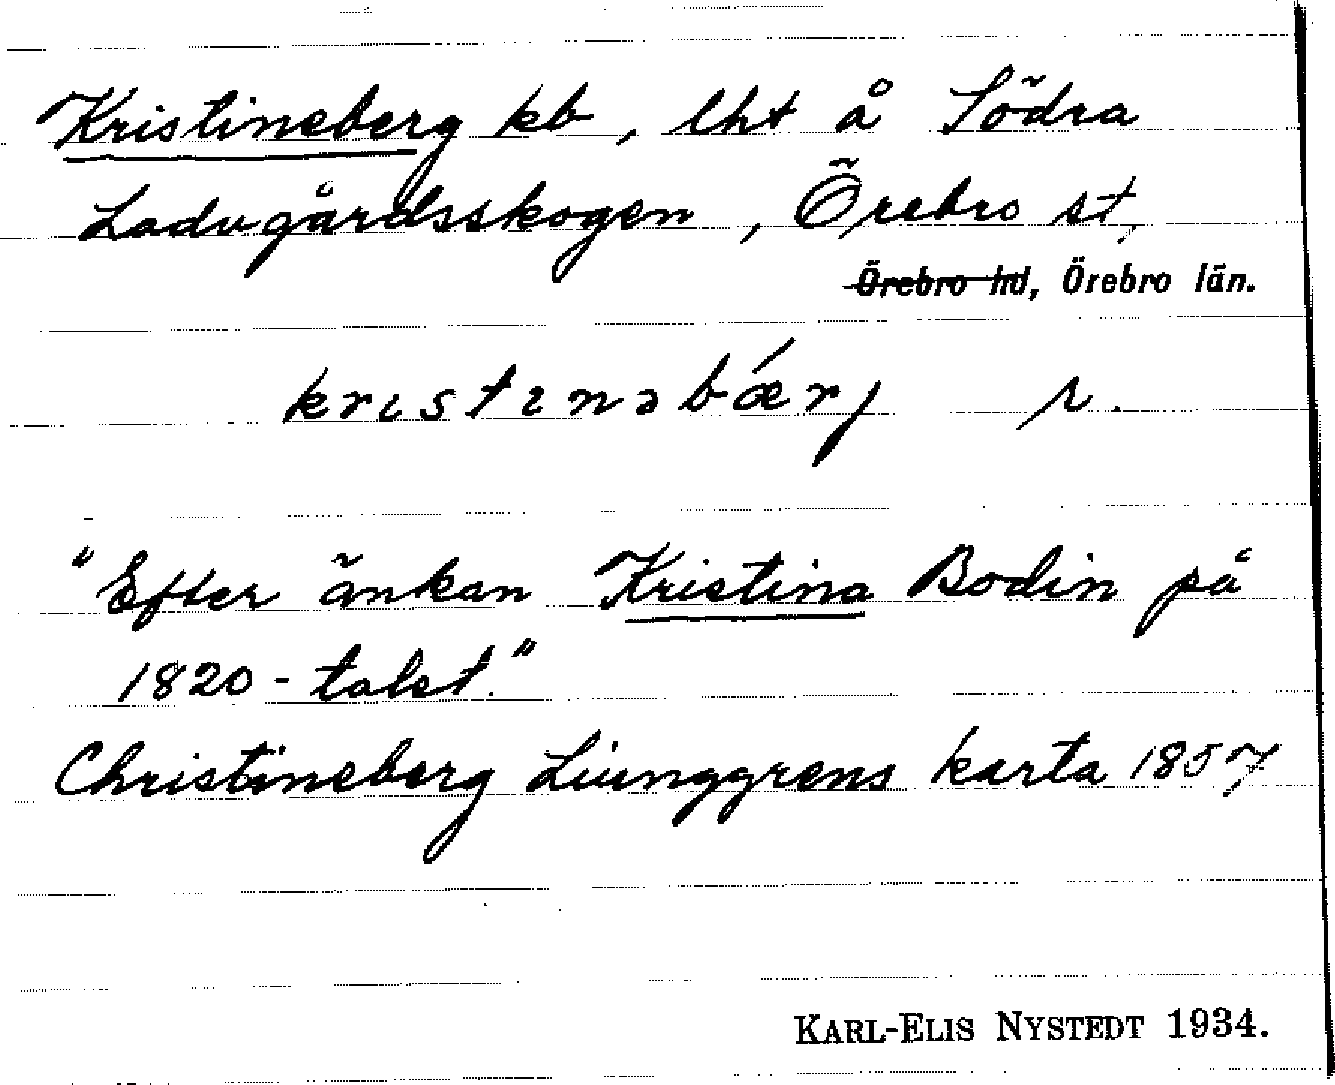 Kristineberg kb, lht å Södra
Ladugårdsskogen, Örebro st,
Örebro hd, Örebro län.
kristinəbǽrj r.
"Efter änkan Kristina Bodin på
1820-talet."
Christineberg Liunggrens karta 1857
KARL-ELIS NYSTEDT 1934.